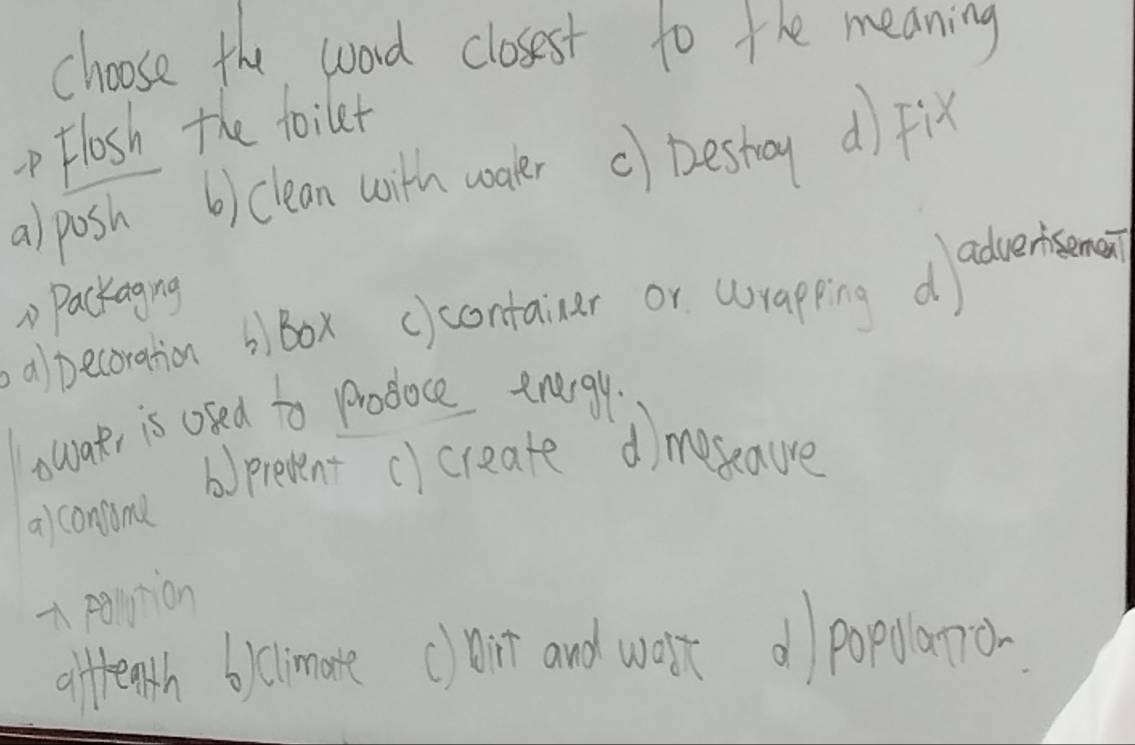 Choose the word closest to the meaning
→ Flosh the toilet
a) posh b) Clean with water c) Destroy d) Fix
→ Packaging
a) Decoration b) Box c) container or wrapping d) advertisement
→ Water is used to produce energy.
a) consome b) prevent c) create d) meseaure
→ pollution
a) Health b) Climate c) Dirt and wast d) population.